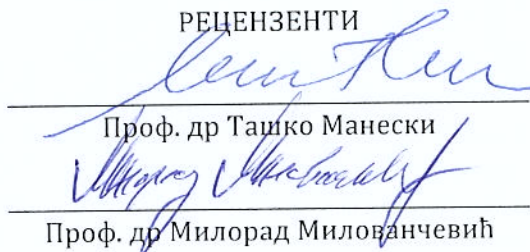 РЕЦЕНЗЕНТИ
Проф. др Ташко Манески
Проф. др Милорад Милованчевић